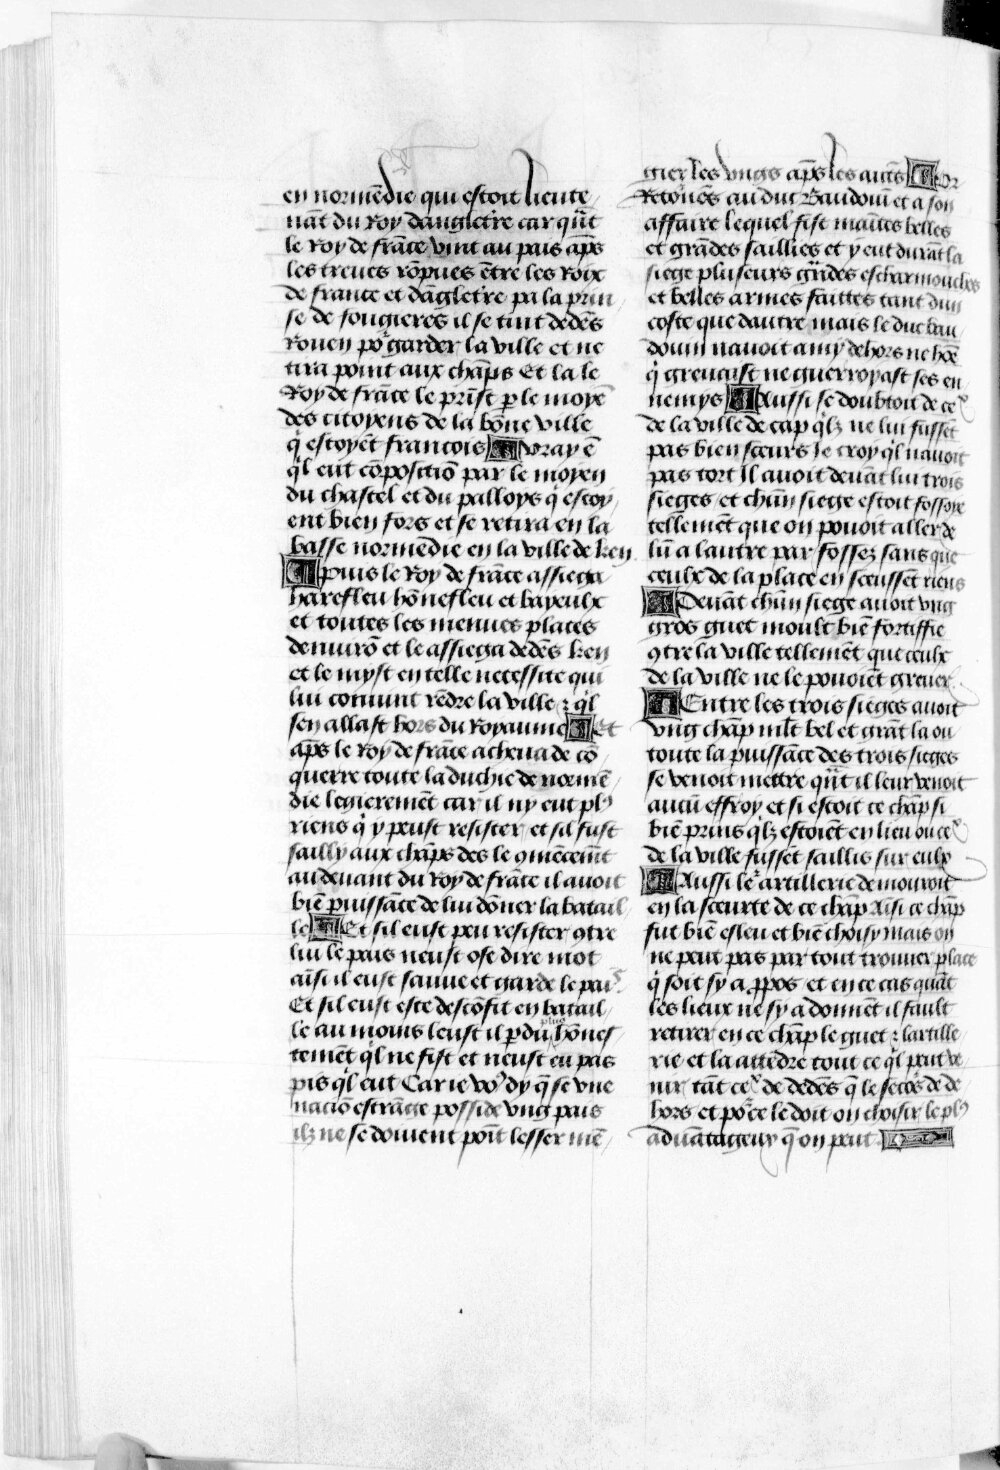 en normēdie qui estoit lieute
nāt du Roy dāgletr̄e car qn̄t
le roy de frāce vint au pais ap̄s
les treues rōpues ētre les roix
de france et dāgletr̄e pa la prin
se de fougieres il se tint dedēs
rouen pōr garder la ville et ne
tira point aux chāps Et la le
Roy de frāce le prīst p̱ le moyē
des citoyens de la bōne ville
q̄ estoyēt francois vray ē
q̄l eut cōpositiō par le moyen
du chastel et du palloys q̄ estoy
ent bien fors et se retira en la
basse normēdie en la ville de ken
puis le Roy de frāce assiega
harefleu hōnefleu et bayeulx
et toutes les menues places
denuirō et le assiega dedēs ken
et le myst en telle necessite qui
lui couuint rēdre la ville ⁊ q̄l
sen allast hors du royaume Et
ap̄s le roy de frāce acheua de cō
querre toute la duchie de normē
die legieremēt car il ny eut plꝰ
riens q̄ y peust resister et sil fust
sailly aux chāps des le ꝯmēcemt̄
au deuant du roy de frāce il auoit
biē puissāce de lui dōner la batail
le Et sil eust peu resister ꝯtre
lui le pais neust ose dire mot
aīsi il eust sauue et garde le pais
Et sil eust este descōfit en batail
le au moins leust il p̱du plus hōnes
temēt q̄l ne fist et neust eu pas
pis q̄l eut Car ie voꝰ dy q̄ se vne
naciō estrāge posside vng pais
ilz ne se doiuent poīt lesser mē
gier les vngs ap̄s les aut̄s or
Retōnēs au duc Baudouin et a son
affaire lequel fist maītes belles
et grādes saillies et y eut durāt la
siege pluseurs grādes escharmouches
et belles armes faittes tant dun
coste que dautre mais le duc bau
douin nauoit amy dehors ne hōe
q̄ greuast ne guerroyast ses en
nemys Aussi se doubtoit de ceꝰ
de la ville de cap q̄lz ne lui fussēt
pas bien sceurs Je croy q̄l nauoit
pas tort Il auoit deuāt lui trois
sieges et chūn siege estoit fossoye
tellemēt que on pouoit aller de
lū a lautre par fossez sans que
ceulx de la place en sceussēt riens
Deuāt chūn siege auoit vng
gros guet moult biē fortiffie
ꝯtre la ville tellemēt que ceulx
de la ville ne le pouoiēt greuer
Entre les trois sieges auoit
vng chāp ml̄t bel et grāt la ou
toute la puissāce des trois sieges
se venoit mettre qn̄t il leur venoit
aucū effroy et si estoit ce chāp si
biē prins q̄lz estoiēt en lieu ou ceꝰ
de la ville fussēt saillis sur eulx
Aussi lr̄e artillerie demouroit
en la sceurte de ce chāp Aīsi ce chāp
fut biē esleu et biē choisy mais on
ne peut pas par tout trouuer place
q̄ soit sy a ꝓpos et en ce cas quāt
les lieux ne sy adonnēt il fault
retirer en ce chāp le guet ⁊ lartille
rie et la attēdre tout ce q̄l peut ve
nir tāt ceꝰ de dedēs q̄ le secōs de de
hors et pōr ce le doit on choisir le plꝰ
aduātageux q̄ on peut